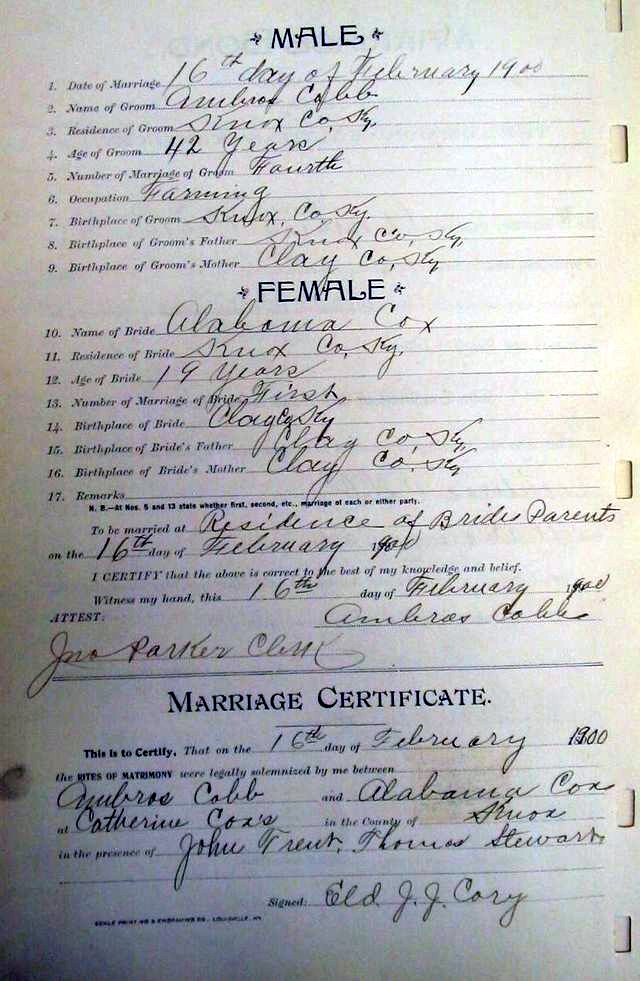 MALE
1. Date of Marriage 16th day of February 1900
2. Name of Groom Ambros Cobb
3. Residence of Groom Knox Co, Ky,
4. Age of Groom 42 Years
5. Number of Marriage of Groom Fourth
6. Occupation Farming
7. Birthplace of Groom Knox, Co, Ky.
8. Birthplace of Groom's Father Knox Co, Ky,
9. Birthplace of Groom's Mother Clay Co, Ky
FEMALE
10. Name of Bride Alabama Cox
11. Residence of Bride Knox Co, Ky,
12. Age of Bride 19 Years
13. Number of Marriage of Bride First
14. Birthplace of Bride Clay Co Ky
15. Birthplace of Bride's Father Clay Co, Ky,
16. Birthplace of Bride's Mother Clay Co, Ky
17. Remarks
N. B.—At Nos. 5 and 13 state whether first, second, etc., marriage of each or either party.
To be married at Residence of Brides Parents
on the 16th day of February 1900
I CERTIFY that the above is correct to the best of my knowledge and belief.
Witness my hand, this 16th day of February 1900
ATTEST: Ambros Cobb
Jno Parker Clerk
MARRIAGE CERTIFICATE.
This is to Certify, That on the 16th day of February 1900
the RITES OF MATRIMONY were legally solemnized by me between
Ambros Cobb and Alabama Cox
at Catherine Cox's in the County of Knox
in the presence of John Trent, Thomas Stewart
Signed: Eld. J. J. Cory
PRINTING & ENGRAVING CO., LOUISVILLE, KY.